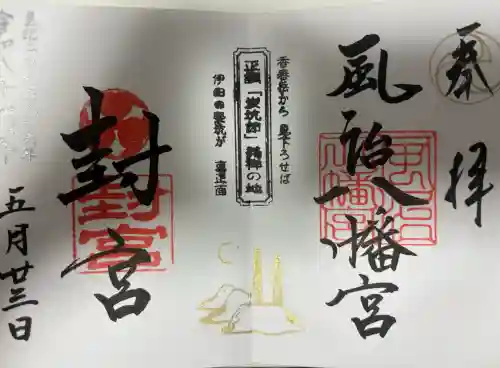 奉拝
風治八幡宮
香春岳から見下ろせば
正調「炭坑節」発祥の地
伊田の竪坑が真正面
封宮
封宮
五月廿三日